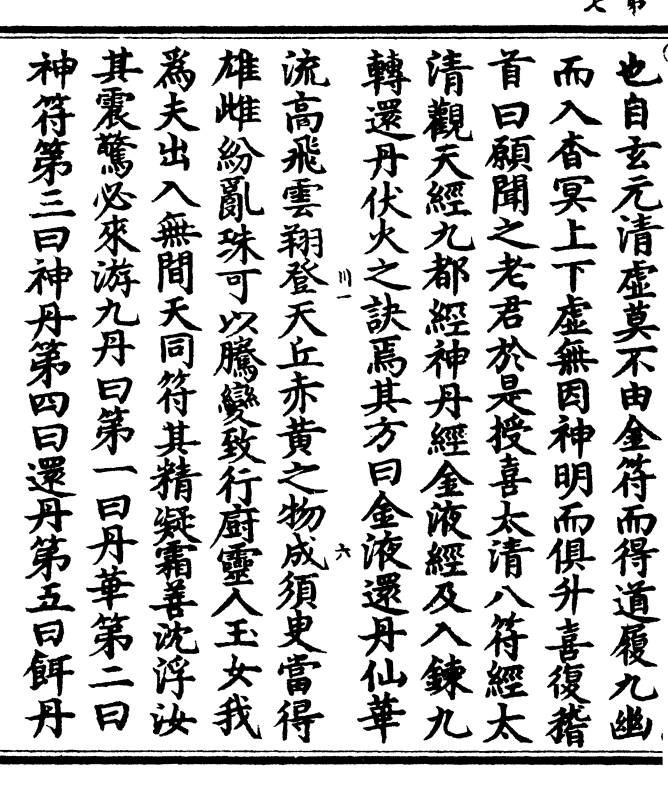 也自玄元清虛莫不由金符而得道履九幽
而入杳冥上下虛無因神明而俱升喜復稽
首曰願聞之老君於是授喜太清八符經太
清觀天經九都經神丹經金液經及入鍊九
轉還丹伏火之訣焉其方曰金液還丹仙華
川一
六
流高飛雲翔登天丘赤黃之物成須臾當得
雄雌紛亂珠可以騰變致行廚靈人玉女我
為夫出入無間天同符其精凝霜善沈浮汝
其震驚必來游九丹曰第一曰丹華第二曰
神符第三曰神丹第四曰還丹第五曰餌丹